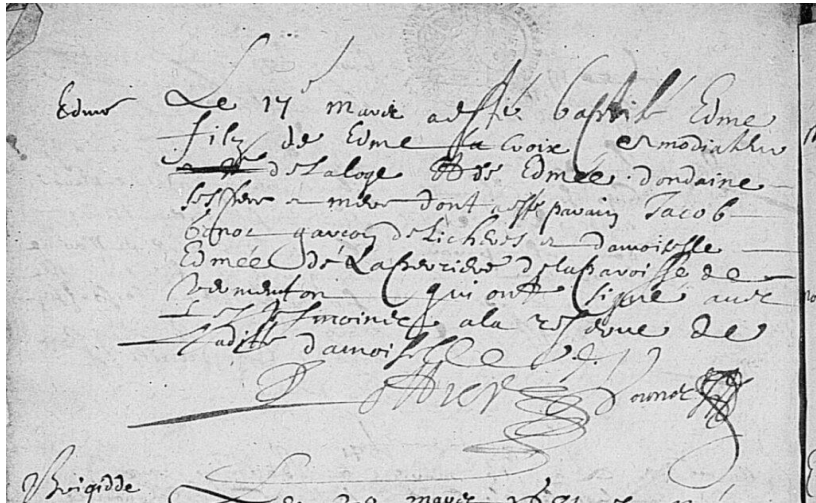 Edme
Le 17 mars a esté baptisé Edme
filz de Edme la Croix
de la loge & de Edmée dondaine
ses pere et mere dont a esté parain Jacob
garçon de licheres et damoiselle
Edmée de la perriere de la paroisse de
Vermenton qui ont signé avec
les tesmoincts a la reserve de
ladite damoiselle
Brigidde
mars